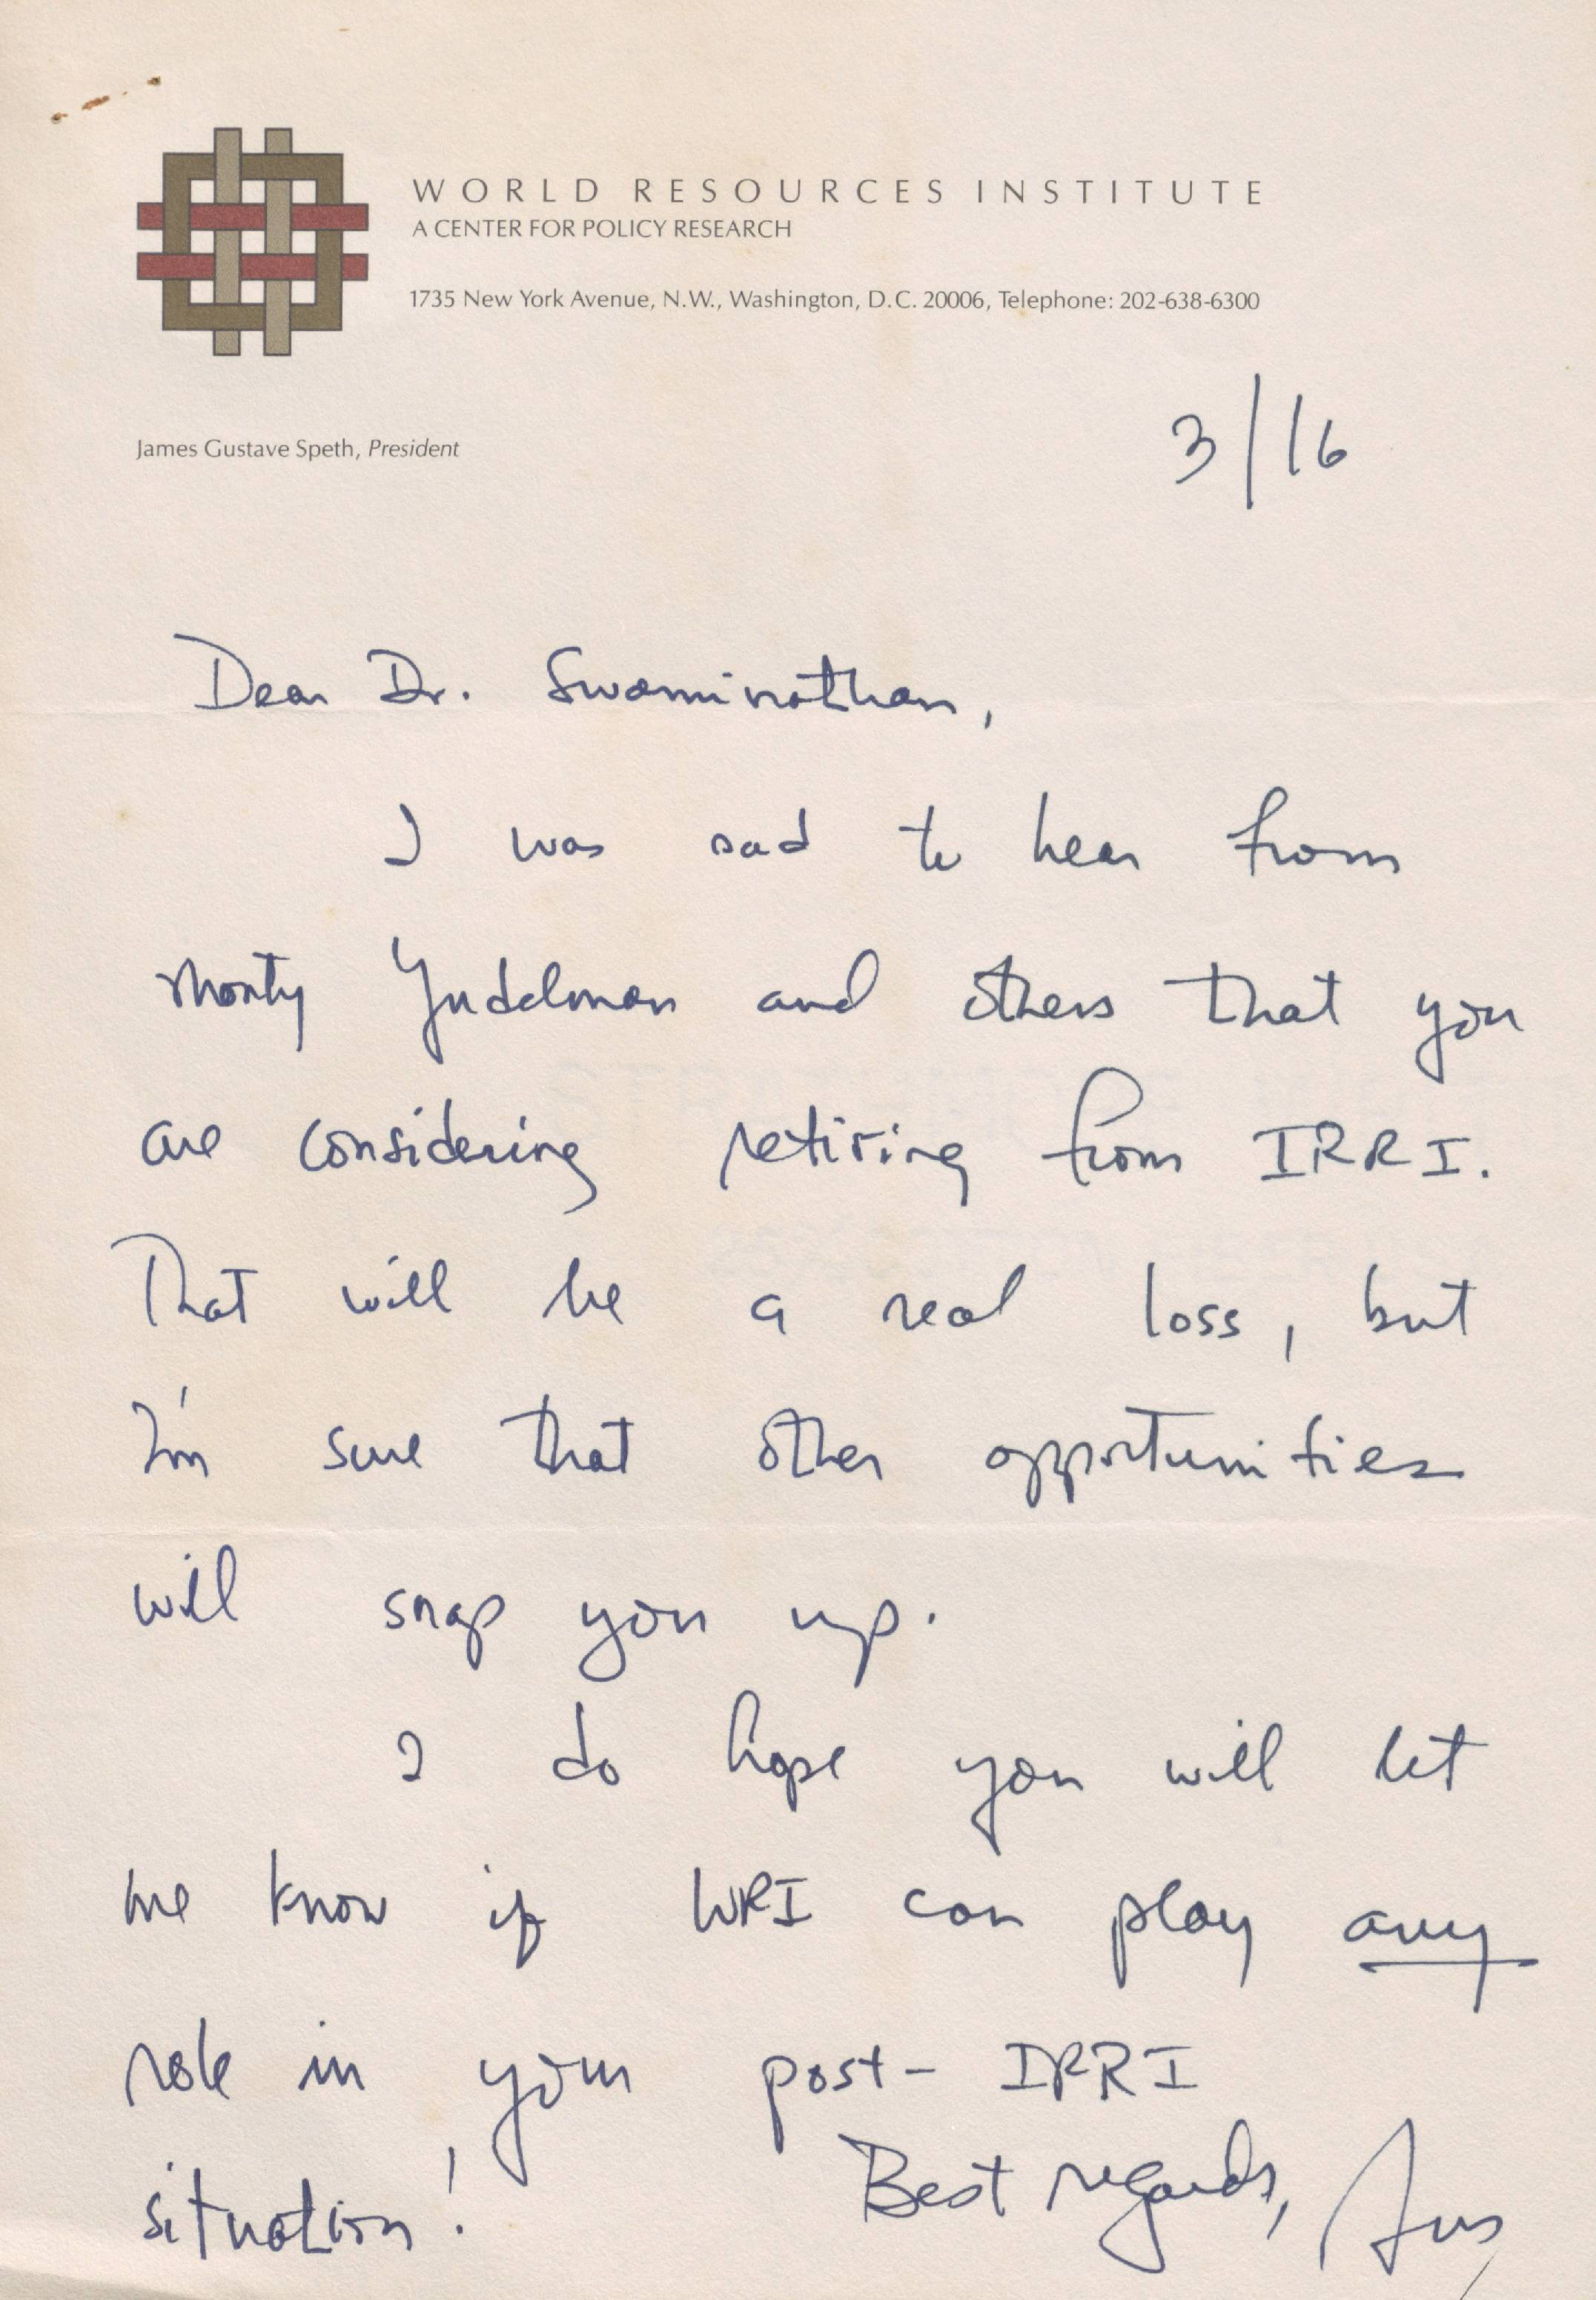 WORLD RESOURCES INSTITUTE
A CENTER FOR POLICY RESEARCH
1735 New York Avenue, N.W., Washington, D.C. 20006, Telephone: 202-638-6300
James Gustave Speth, President
3/16
Dear Dr. Swaminathan,
I was sad to hear from
Monty Yudelman and others that you
are considering retiring from IRRI.
That will be a real loss, but
I'm sure that other opportunities
will snap you up.
I do hope you will let
me know if WRI can play any
role in your post-IRRI
situation!
Best regards, Gus